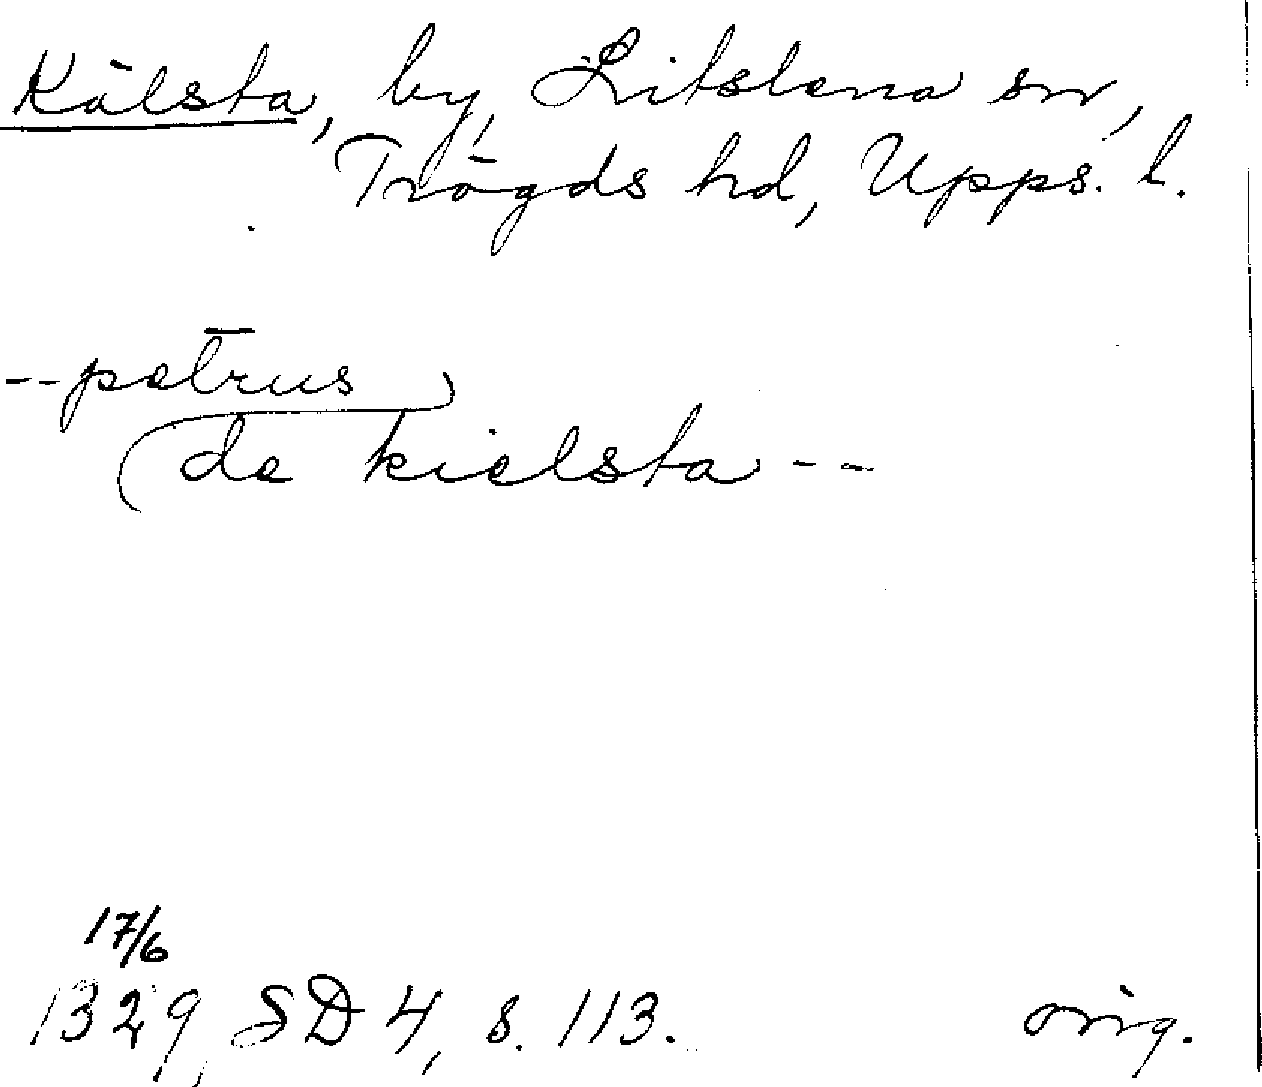 Kälsta, by, Litslena sn,
Trögds hd, Upps. l.
--petrus
de kielsta --
17/6
1329, SD 4, s. 113. orig.